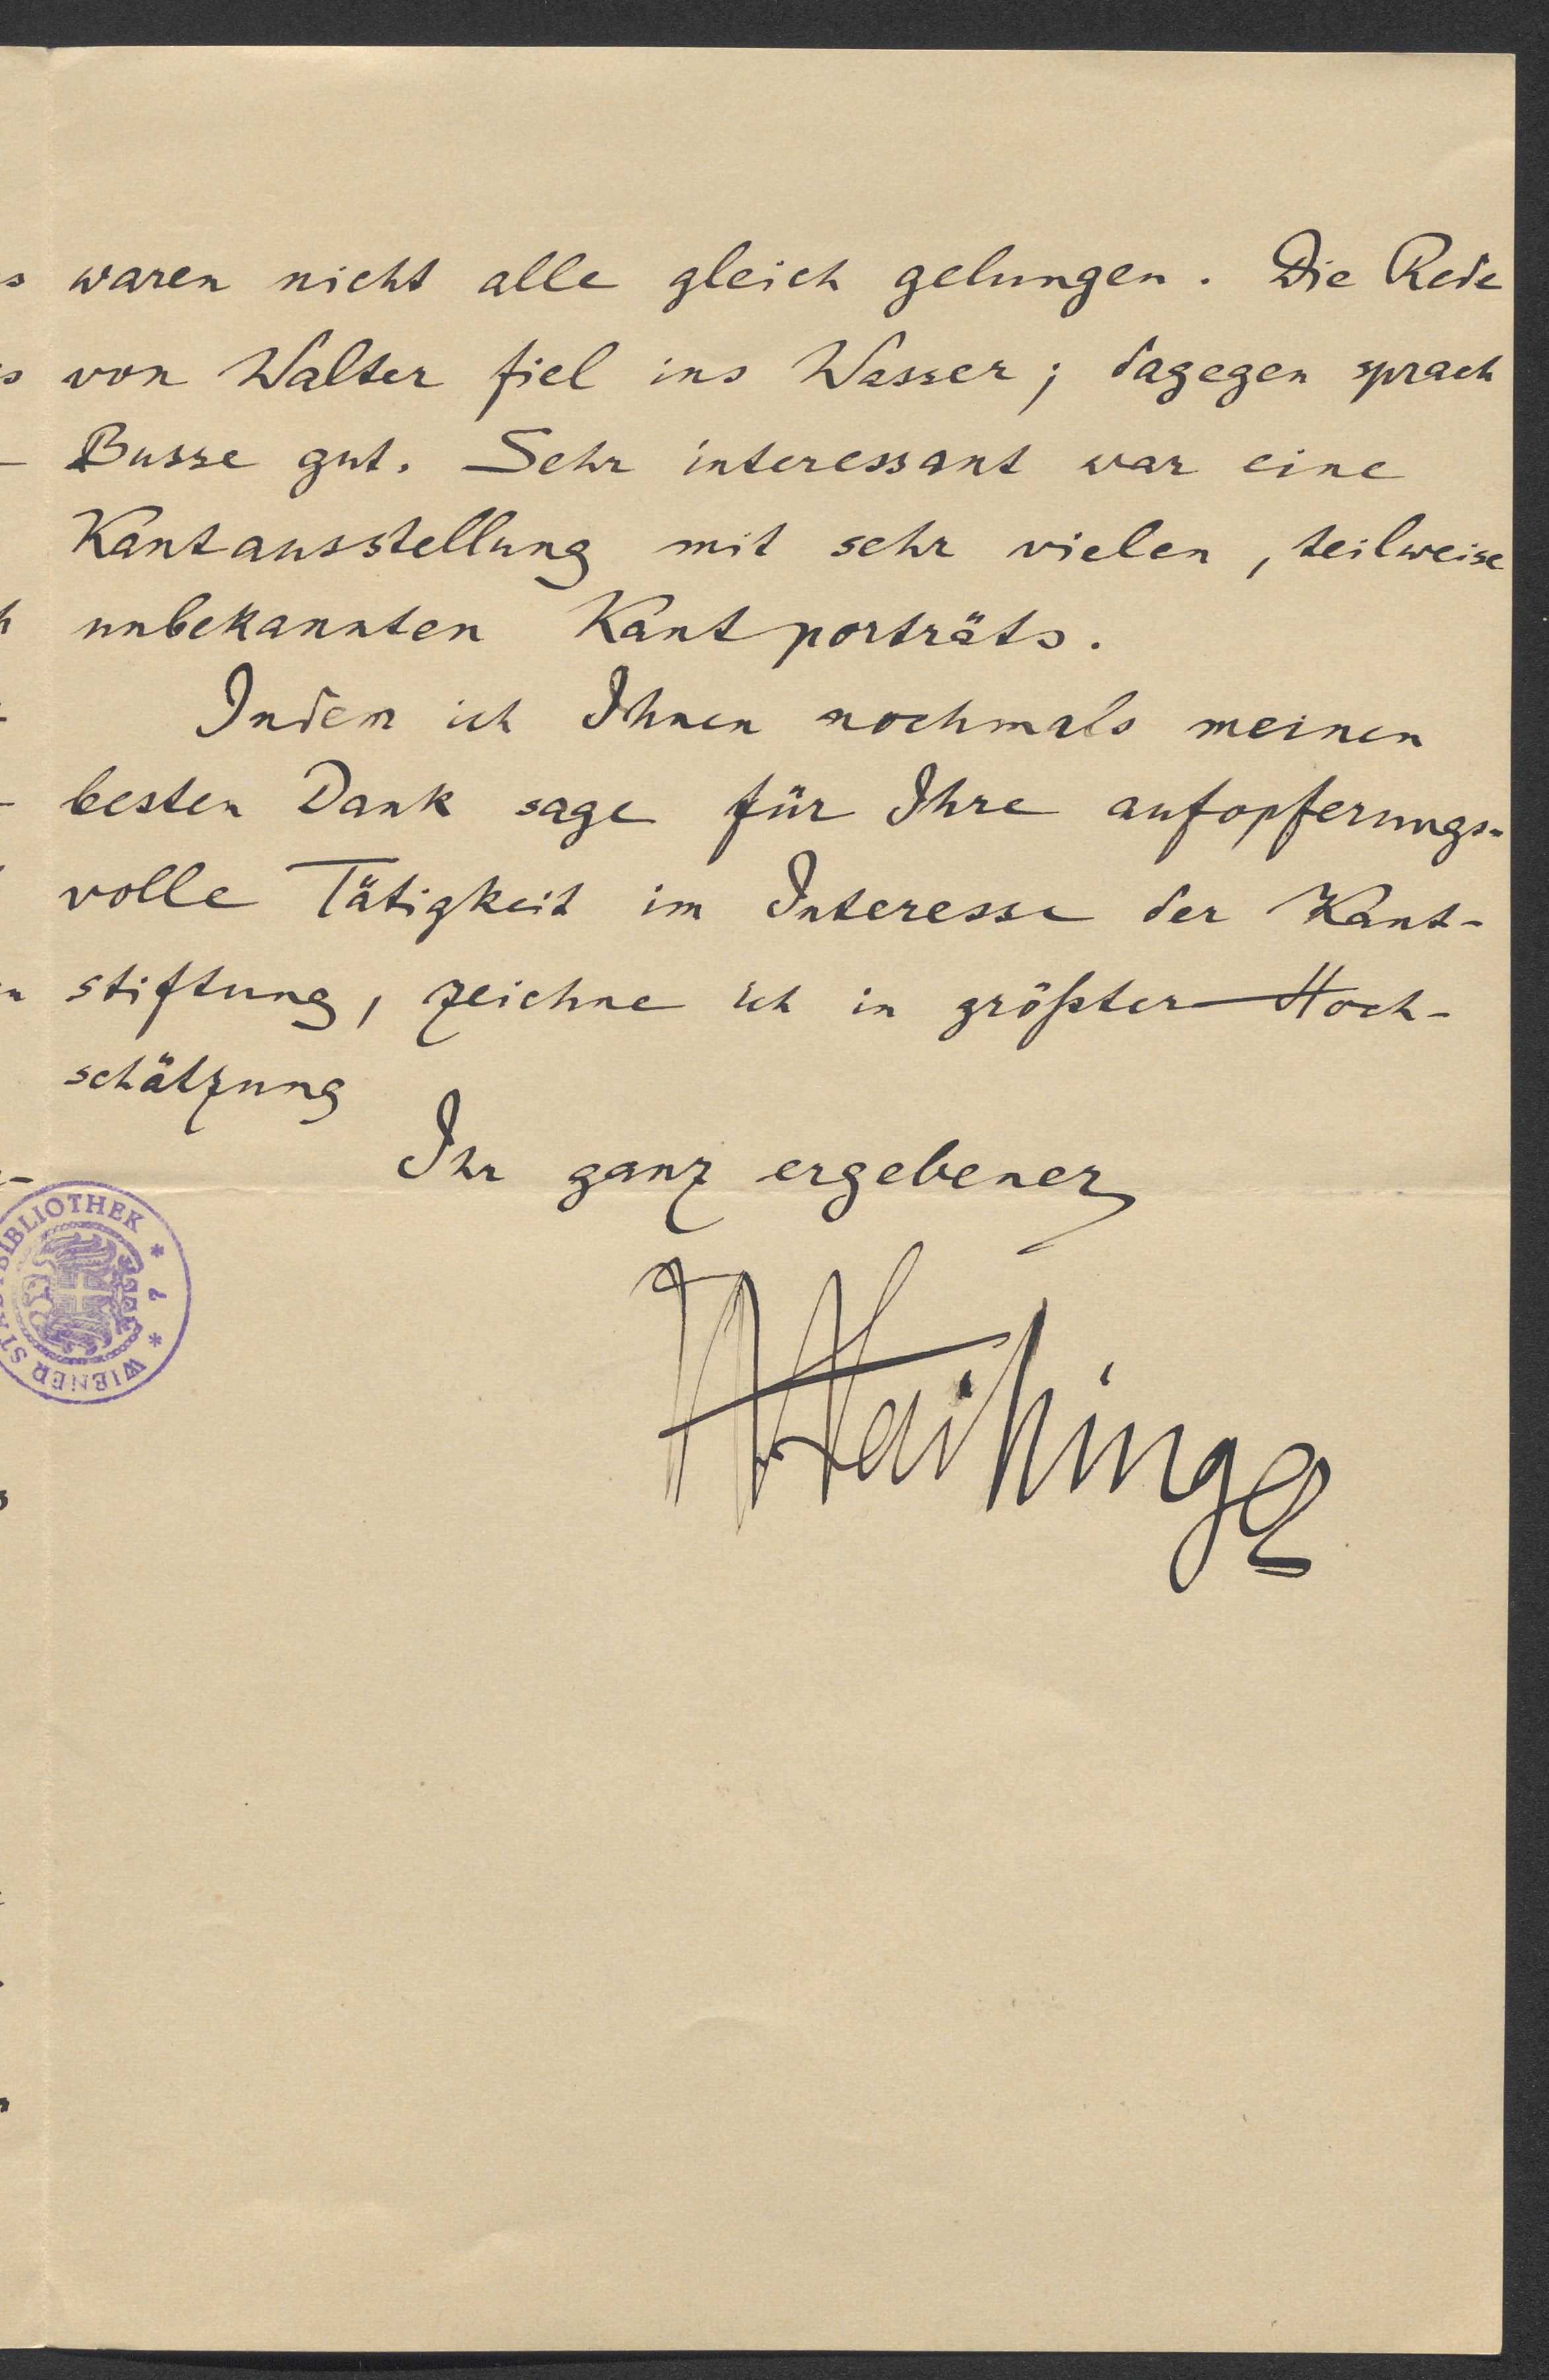 waren nicht alle gleich gelungen. Die Rede
von Walter fiel ins Wasser; dagegen sprach
Busse gut. Sehr interessant war eine
Kantausstellung mit sehr vielen, teilweise
unbekannten Kantporträts.
Indem ich Ihnen nochmals meinen
besten Dank sage für Ihre aufopferungs-
volle Tätigkeit im Interesse der Kant-
stiftung, zeichne ich in größter Hoch-
schätzung
Ihr ganz ergebener
H Vaihinger
WIENER STADTBIBLIOTHEK